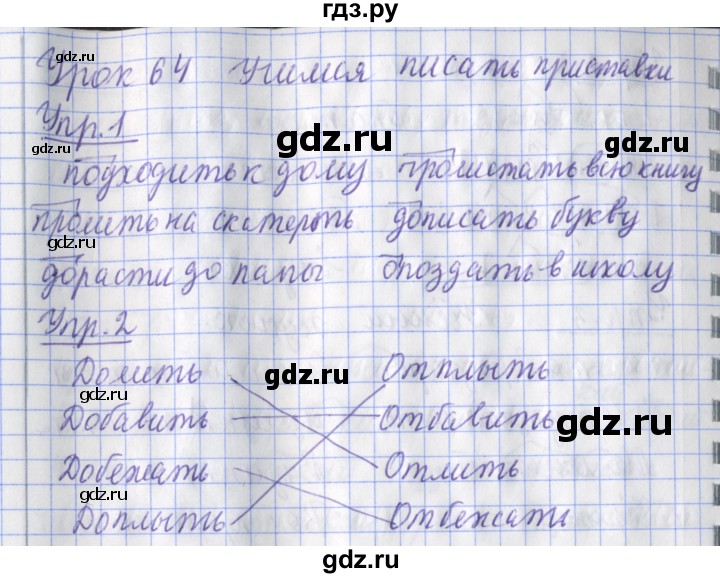 гдз.ру
Урок 64 Учимся писать приставки
gdz.ru
Упр.1
gdz.ru
gdz.ru
подходить к дому пролистать всю книгу
пролить на скатерть дописать букву
дорасти до папы опоздать в школу
Упр.2
Долить Отплыть
gdz.ru
Добавить Отбавить
gdz.ru
Добежать Отлить
Доплыть Отбежать
gdz.ru
gdz.ru